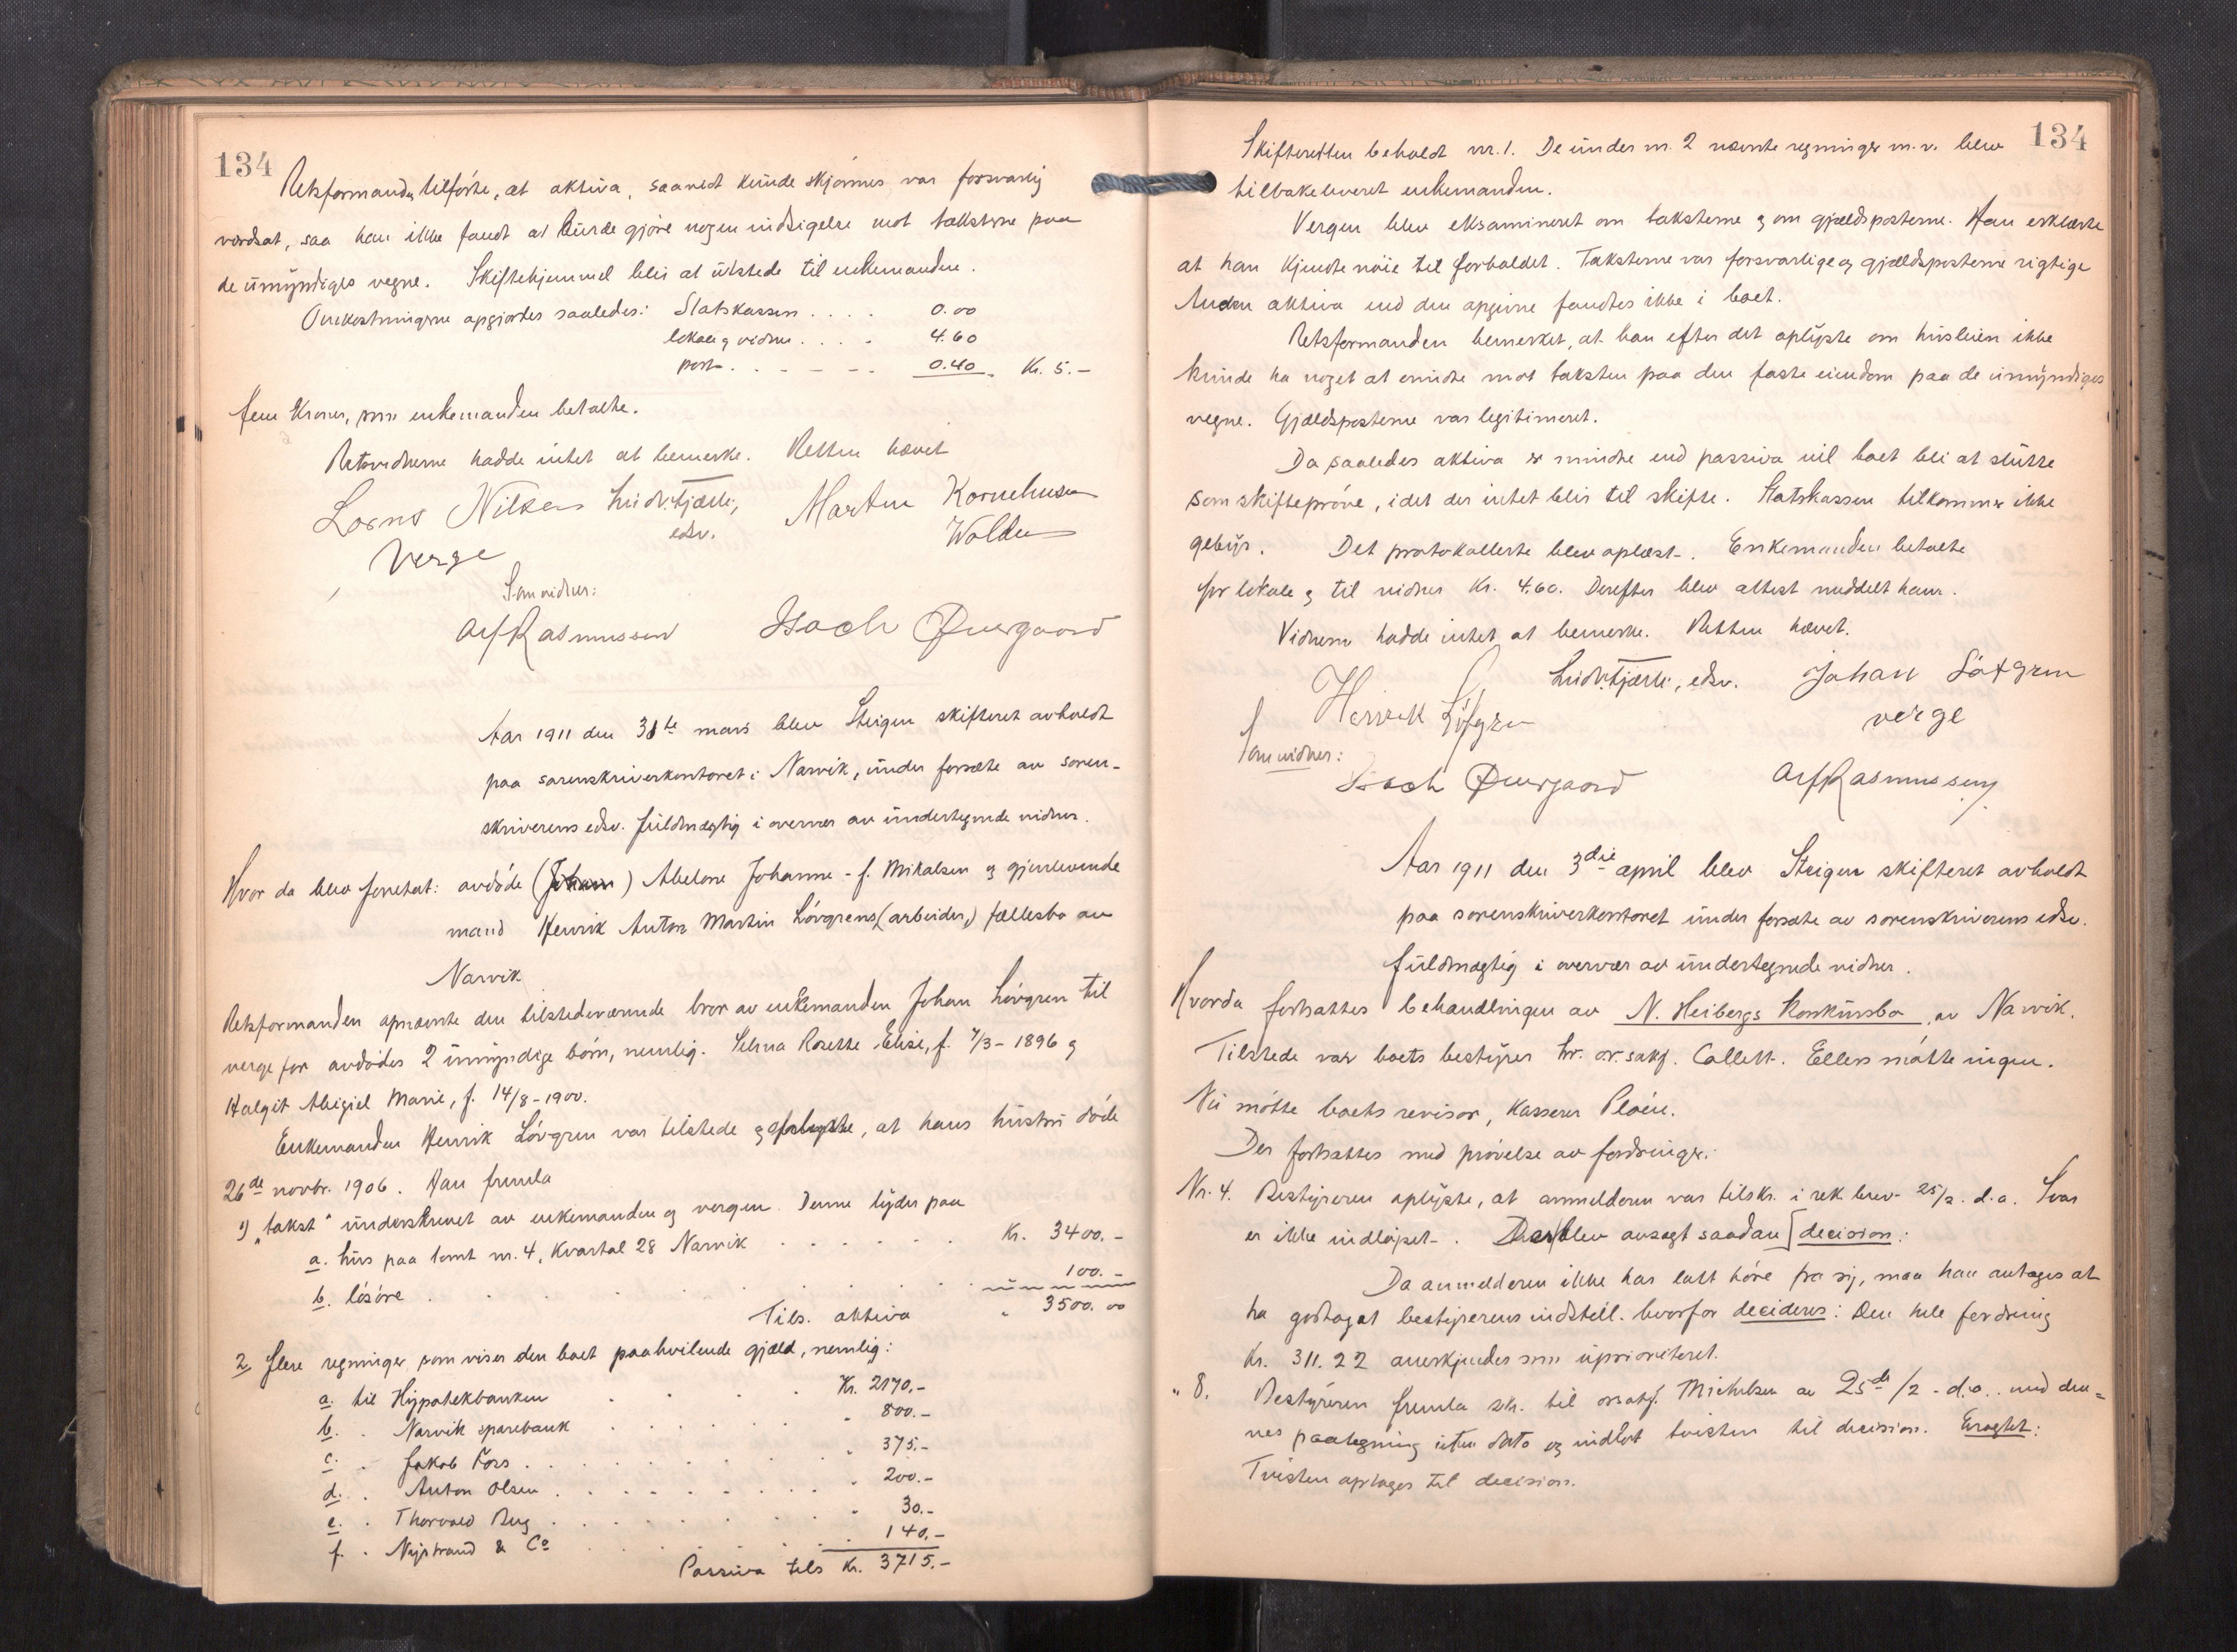 134
Retsformanden tilførte, at aktiva, saavidt kunde skjønnes var forsvarlig
værdsat, saa han ikke fandt at burde gjøre nogen indsigelse mot taksterne paa
de umyndiges vegne. Skiftehjemmel blir at utstede til enkemanden.
Omkostningerne opgjordes saaledes: Statskassen . . . . 0.00
lokale og vidner . . . . 4.60
porto . . . . . 0.40 Kr. 5.-
fem Kroner, som enkemanden betalte.
Retsvidnerne hadde intet at bemerke. Retten hævet
Nilsen Ludv. Fjærli, Martin Kornelius
edsv. Wolden
Verge
Som vidner:
Alf Rasmussen Isach Øvergaard
Aar 1911 den 31te mars blev Steigen skifteret avholdt
paa sorenskriverkontoret i Narvik, under forsæte av soren-
skriverens edsv. fuldmægtig i overvær av undertegnede vidner.
Hvor da blev foretat: avdøde (Johan) Abelone Johanne - f. Mikalsen og gjenlevende
mand Henrik Anton Martin Løvgrens (arbeider,) fællesbo av
Narvik
Retsformanden opnævnte den tilstedeværende bror av enkemanden Johan Løvgren til
verge for avdødes 2 umyndige børn, nemlig. Selma Rosette Elise, f. 7/3 - 1896 og
Halgit Abigiel Marie, f. 14/8 - 1900.
Enkemanden Henrik Løvgren var tilstede og oplyste, at hans hustru døde
26de novbr. 1906. Han fremla
1) "takst" underskrevet av enkemanden og vergen. Denne lyder paa
a. hus paa tomt nr. 4, Kvartal 28 Narvik . . . . . . Kr. 3400.-
b. løsøre . . . . . . . . 100.-
Tils. aktiva " 3500.00
2, flere regninger som viser den boet paahvilende gjæld, nemlig:
a. til Hypotekbanken . . . . Kr. 2170.-
b. " Narvik sparebank . . . . . " 800.-
c. " Jakob Fors . . . . . . . " 375.-
d. " Anton Olsen . . . . . . . " 200.-
e. " Thorvald Aug . . . . . . . " 30.-
f. " Nystrand & Co . . . . . . 140.-
Passiva tils Kr. 3715.-
134
Skifteretten beholdt nr. 1. De under nr. 2 nævnte regninger m.v. blev
tilbakeleveret enkemanden.
Vergen blev eksamineret om taksterne og om gjældsposterne. Han erklærte
at han kjendte nøie til forholdet. Taksterne var forsvarlige og gjældsposterne rigtige
Anden aktiva end den opgivne fandtes ikke i boet.
Retsformanden bemerket, at han efter det oplyste om husleien ikke
kunde ha noget at erindre mot taksten paa den faste eiendom paa de umyndiges
vegne. Gjældsposterne var legitimeret.
Da saaledes aktiva er mindre end passiva vil boet bli at slutte
som skifteprøve, idet der intet blir til skifte. Statskassen tilkommer ikke
gebyr. Det protokollerte blev oplæst. Enkemanden betalte
for lokale og til vidner Kr. 4.60. Derefter blev attest meddelt ham.
Vidnerne hadde intet at bemerke. Retten hævet.
Henrik Löfgren Ludv. Fjærli, edsv. Johan Löfgren
verge
Som vidner:
Isach Øvergaard Alf Rasmussen
Aar 1911 den 3die april blev Steigen skifteret avholdt
paa sorenskriverkontoret under forsæte av sorenskriverens edsv.
fuldmægtig i overvær av undertegnede vidner.
Hvorda fortsattes behandlingen av N. Heibergs konkursbo, av Narvik.
Tilstede var boets bestyrer hr. or.sakf. Collett. Ellers møtte ingen.
Nu møtte boets revisor, kasserer Ploën.
Der fortsattes med prøvelse av fordringer:
Nr. 4. Bestyreren oplyste, at anmelderen var tilskr. i rek. brev 25/2. d.a. Svar
er ikke indløpet. Der blev avsagt saadan decision:
Da anmelderen ikke har latt høre fra sig, maa han antages at
ha godtaget bestyrerens indstill. hvorfor decideres: Den hele fordring
Kr. 311.22 anerkjendes som uprioriteret.
" 8. Bestyreren fremla skr. til orsakf. Michelsen av 25de/2 - d.a. med den-
nes paategning uten dato og indlot tvisten til decision. Eragtet:
Tvisten optages til decision.